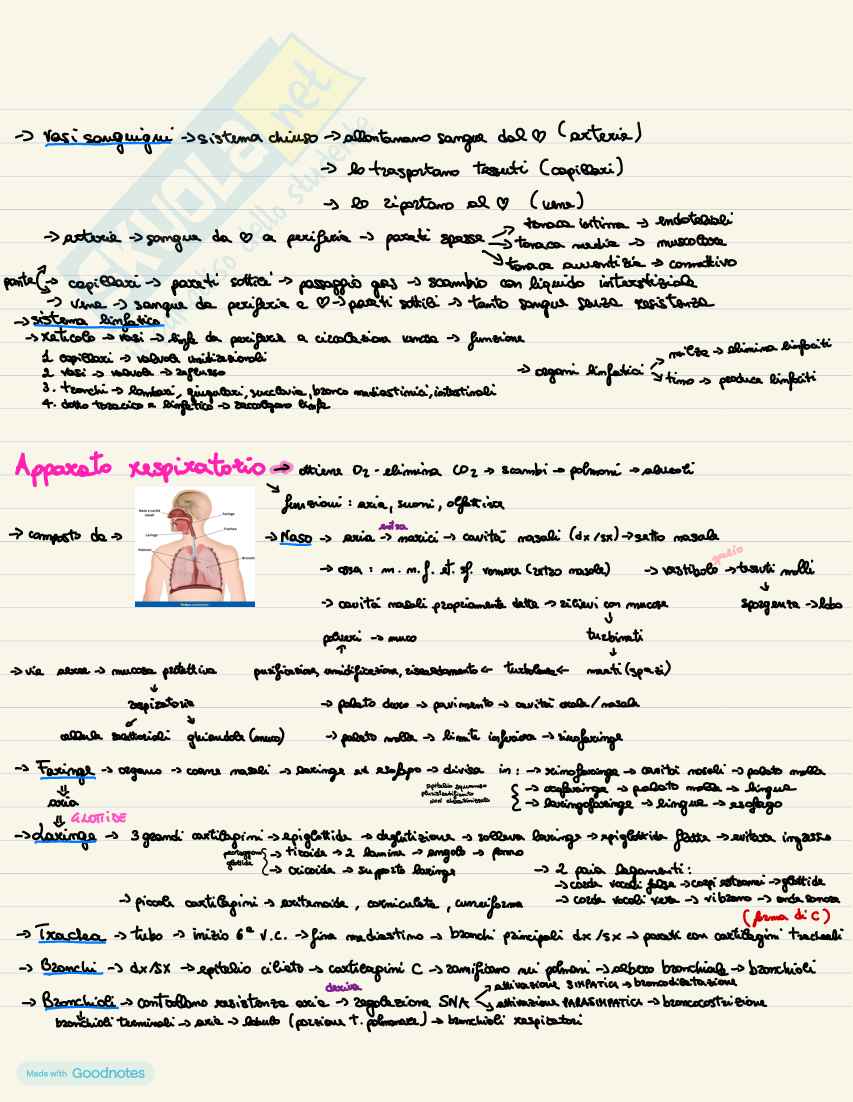 → Vasi sanguigni → sistema chiuso → allontanano sangue dal ♡ (arterie)
→ lo trasportano tessuti (capillari)
→ lo riportano al ♡ (vene)
→ arterie → sangue da ♡ a periferia → pareti spesse → tonaca intima → endoteliali
→ tonaca media → muscolare
→ tonaca avventizia → connettivo
ponte → capillari → pareti sottili → passaggio gas → scambio con liquido interstiziale
→ vene → sangue da periferia a ♡ → pareti sottili → tanto sangue senza resistenza
→ sistema linfatico
→ reticolo → vasi → linfa da periferia a circolazione venosa → funzione
1 capillari → valvole unidirezionali
2 vasi → valvole → reflusso
3. tronchi → lombari, giugulari, succlavia, bronco mediastinici, intestinali
4. dotto toracico e linfatico → raccolgono linfa
→ organi linfatici → milza → elimina linfociti
→ timo → produce linfociti
Apparato respiratorio → ottiene O2 - elimina CO2 → scambi → polmoni → alveoli
funzioni: aria, suoni, olfattiva
→ composto da →
Faringe
Laringe
Trachea
Polmone
Bronchi
→ Naso → aria → entra narici → cavità nasali (dx/sx) → setto nasale
→ ossa: m. n. f. et. sf. vomere (setto nasale)
→ vestibolo → spazio tessuti molli
→ cavità nasali propriamente dette → rilievi con mucose
sporgenza → lobo
polveri → muco
turbinati
→ vie aeree → mucosa protettiva
purificazione, umidificazione, riscaldamento ← turbolenze ← meati (spazi)
respiratoria
→ palato duro → pavimento → cavità orale/nasale
cellule sensoriali ghiandole (muco)
→ palato molle → limite inferiore → rinofaringe
→ Faringe → organo → coane nasali → laringe ed esofago → divisa in: → rinofaringe → cavità nasali → palato molle
epitelio squamoso pluristratificato non cheratinizzato
→ orofaringe → palato molle → lingua
→ laringofaringe → lingua → esofago
aria
GLOTTIDE
→ Laringe → 3 grandi cartilagini → epiglottide → deglutizione → solleva laringe → epiglottide flette → evitare ingresso
proteggono glottide
→ tiroide → 2 lamine → angolo → pomo
→ cricoide → supporto laringe
→ 2 paia legamenti:
→ corde vocali false → corpi estranei → glottide
→ corde vocali vere → vibrano → onda sonora
→ piccole cartilagini → aritenoide, corniculata, cuneiforme
(forma di C)
→ Trachea → tubo → inizio 6ª V.C. → fine mediastino → bronchi principali dx/sx → pareti con cartilagini tracheali
→ Bronchi → dx/sx → epitelio ciliato → cartilagini C → ramificano nei polmoni → albero bronchiale → bronchioli
→ Bronchioli → controllano resistenza aria → deriva regolazione SNA → attivazione SIMPATICA → broncodilatazione
→ attivazione PARASIMPATICA → broncocostrizione
bronchioli terminali → aria → lobulo (porzione t. polmonare) → bronchioli respiratori
Made with Goodnotes
SKUOLA.net